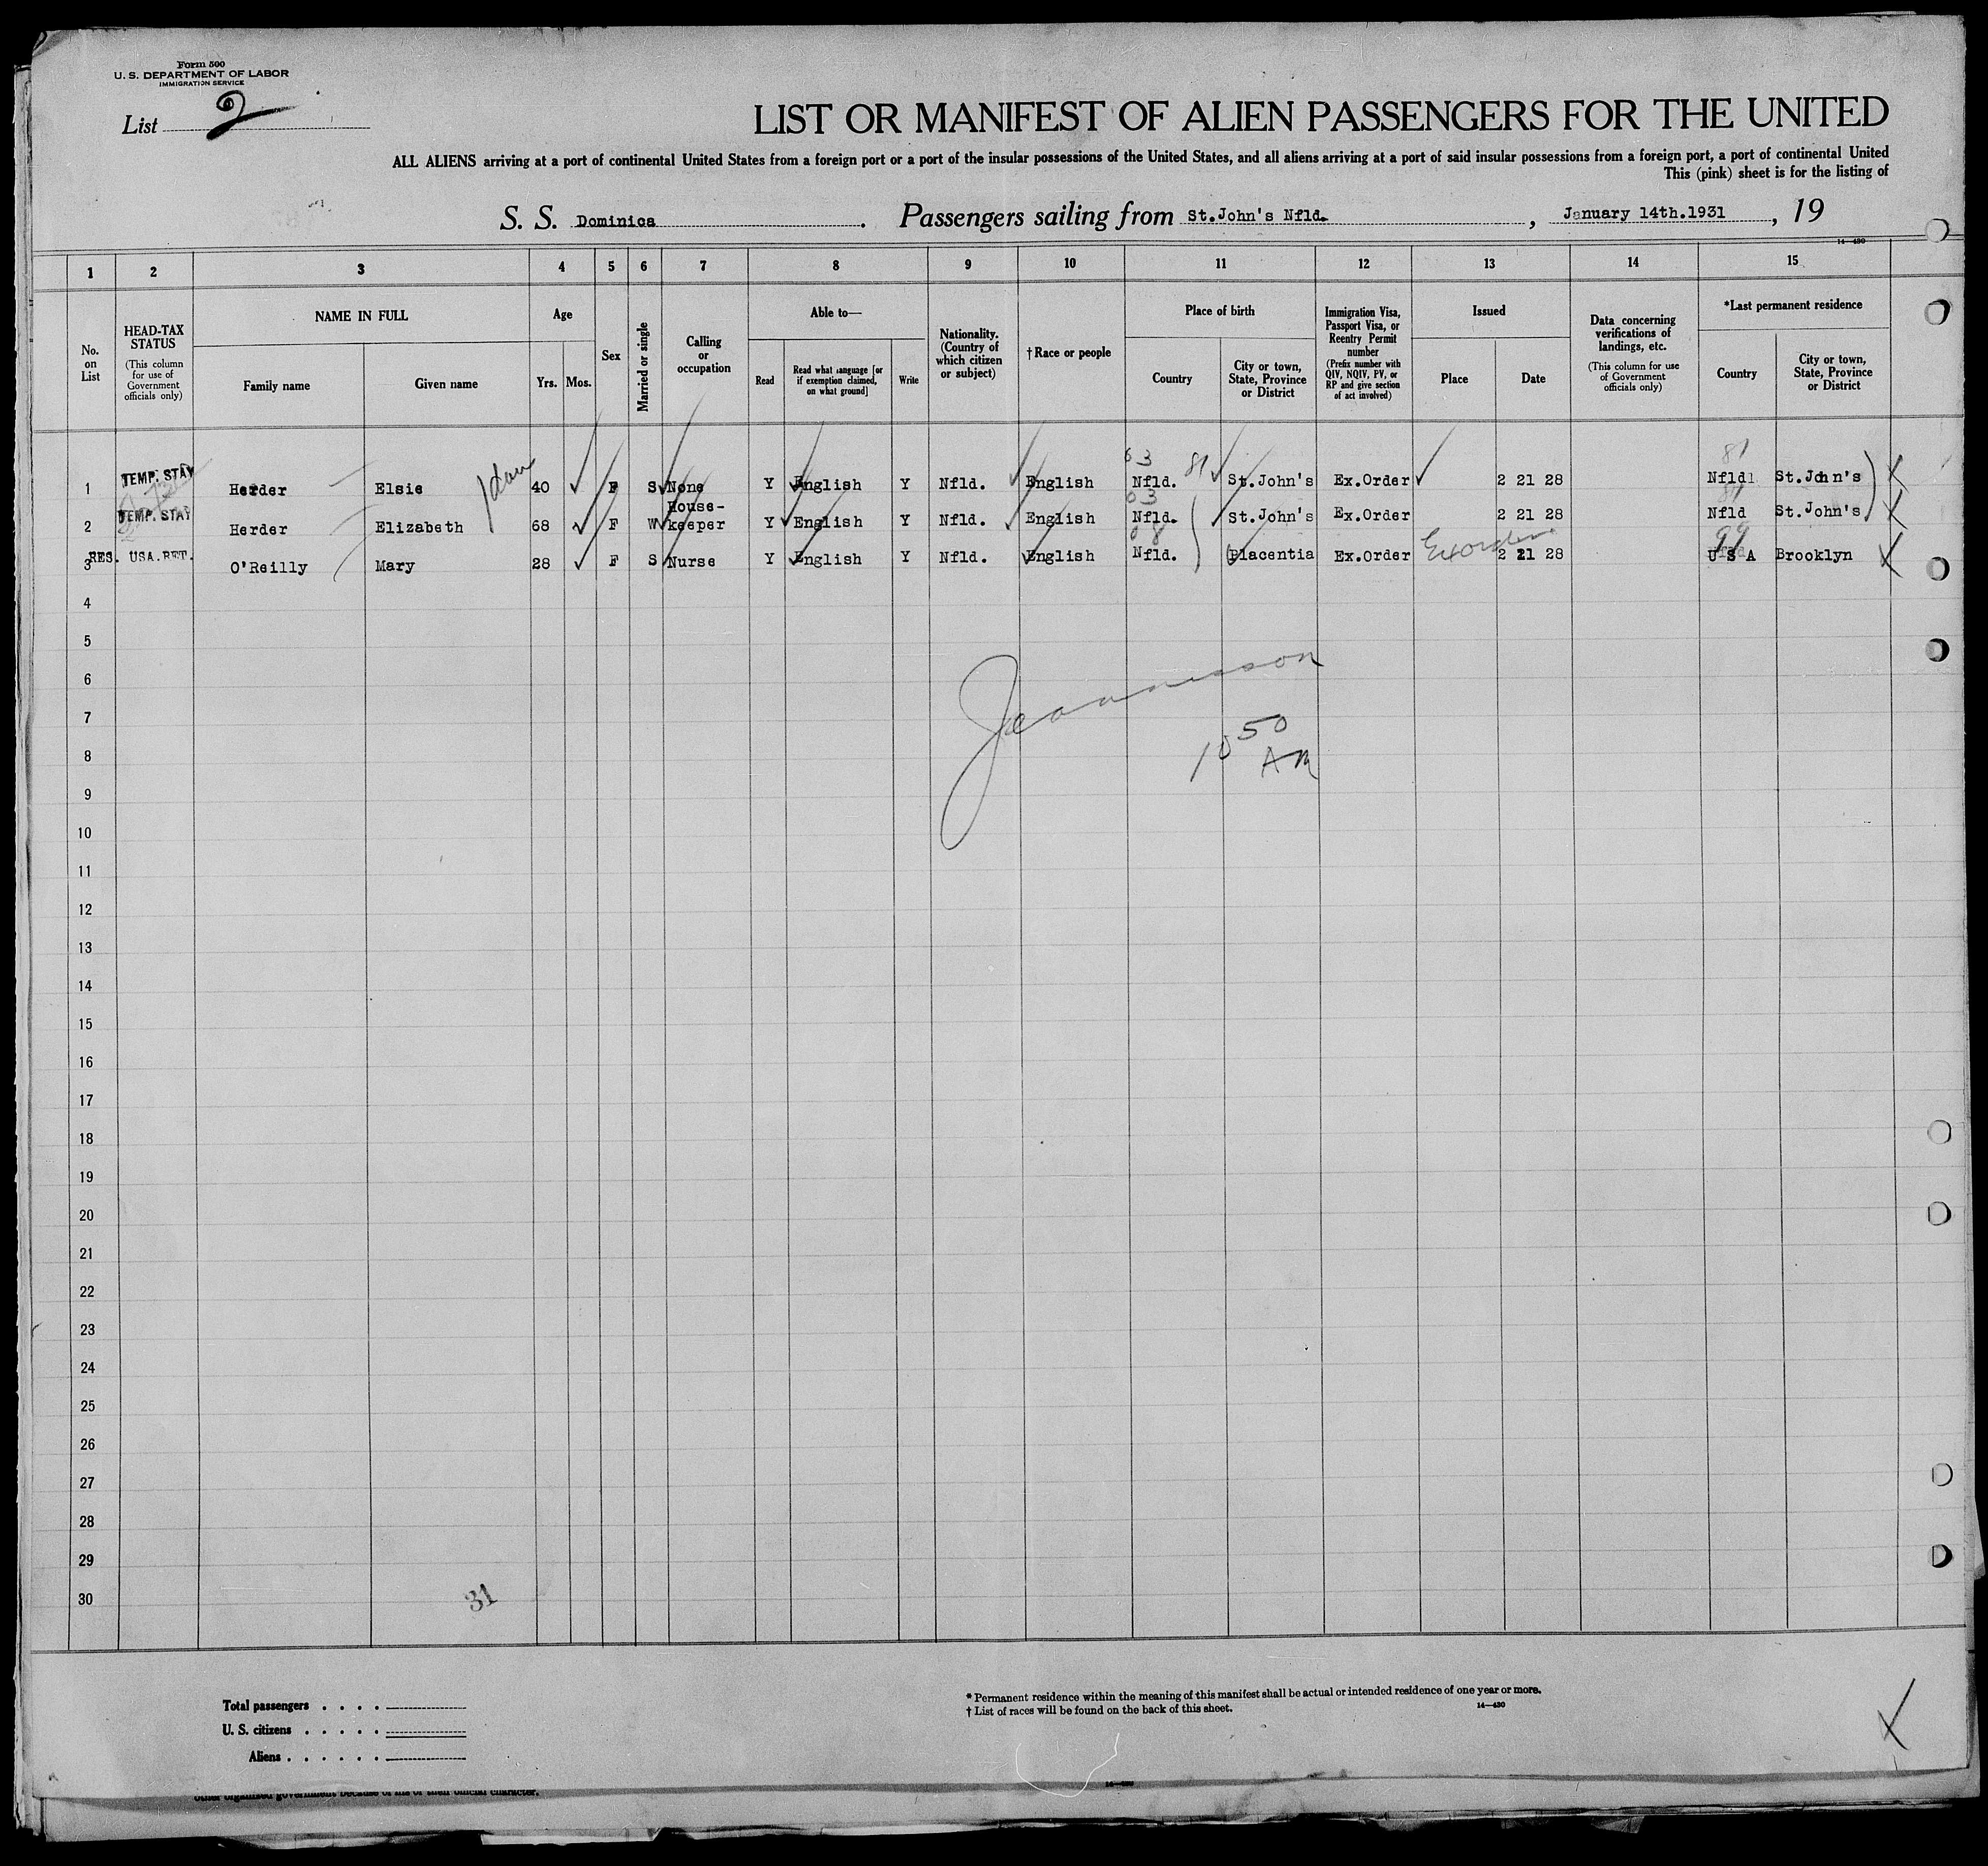 Form 500
U. S. DEPARTMENT OF LABOR
IMMIGRATION SERVICE
List 2
LIST OR MANIFEST OF ALIEN PASSENGERS FOR THE UNITED
ALL ALIENS arriving at a port of continental United States from a foreign port or a port of the insular possessions of the United States, and all aliens arriving at a port of said insular possessions from a foreign port, a port of continental United
This (pink) sheet is for the listing of
S. S. Dominica. Passengers sailing from St.John's Nfld., January 14th.1931, 19
14—430
1 2 3 4 5 6 7 8 9 10 11 12 13 14 15
No. on List
HEAD-TAX STATUS
(This column for use of Government officials only)
NAME IN FULL
Family name
Given name
Age
Yrs. Mos.
Sex
Married or single
Calling or occupation
Able to—
Read
Read what language [or if exemption claimed, on what ground]
Write
Nationality. (Country of which citizen or subject)
†Race or people
Place of birth
Country
City or town, State, Province or District
Immigration Visa, Passport Visa, or Reentry Permit number
(Prefix number with QIV, NQIV, PV, or RP and give section of act involved)
Issued
Place
Date
Data concerning verifications of landings, etc.
(This column for use of Government officials only)
*Last permanent residence
Country
City or town, State, Province or District
63 81 81
1 TEMP. STAY Herder Elsie 40 F S None Y English Y Nfld. English Nfld. St.John's Ex.Order 2 21 28 Nfld St.John's
03 81
2 TEMP. STAY Herder Elizabeth 68 F W House-keeper Y English Y Nfld. English Nfld. St.John's Ex.Order 2 21 28 Nfld St.John's
08 Ex order 99
3 RES. USA. RET. O'Reilly Mary 28 F S Nurse Y English Y Nfld. English Nfld. Placentia Ex.Order 2 21 28 U S A Brooklyn
4
5
6
7
8
9
10
11
12
13
14
15
16
17
18
19
20
21
22
23
24
25
26
27
28
29
30
10 50
AM
31
Total passengers . . . .
U. S. citizens . . . . .
Aliens . . . . . .
* Permanent residence within the meaning of this manifest shall be actual or intended residence of one year or more.
† List of races will be found on the back of this sheet.
14—430
14—430
other organized government because of his or their official character.